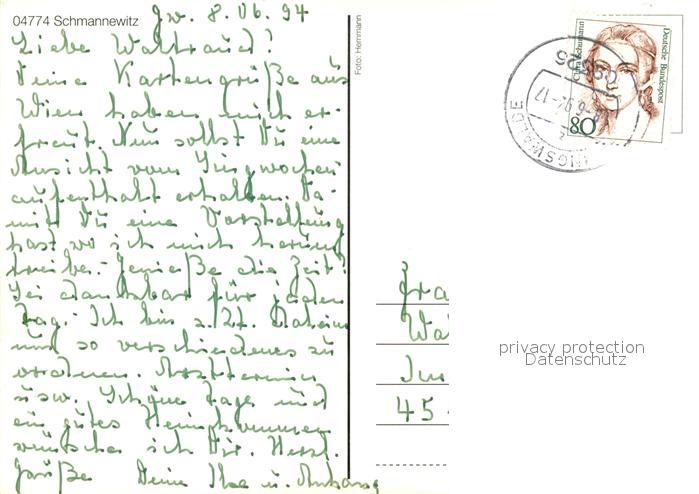 04774 Schmannewitz
Foto: Herrmann
8.06.94
Liebe Waltraud!
Deine Kartengrüße aus
Wien haben mich er-
freut. Nun sollst Du eine
Ansicht vom Singwochen-
aufenthalt erhalten. Da-
mit Du eine Vorstellung
hast wo ich mich herum
treibe. Genieße die Zeit!
Sei dankbar für jeden
Tag. Ich bin z. Zt. Daheim
und so verschiedenes zu
ordnen. Arzttermin
usw. Schöne Tage und
ein gutes Heimkommen
wünsche ich Dir. Herzl.
Grüße Deine Ilse u. Anhang
Clara Schumann
Deutsche Bundespost
80
INGSWALDE
-6.94-17
Fra
Wal
Im
45
privacy protection
Datenschutz